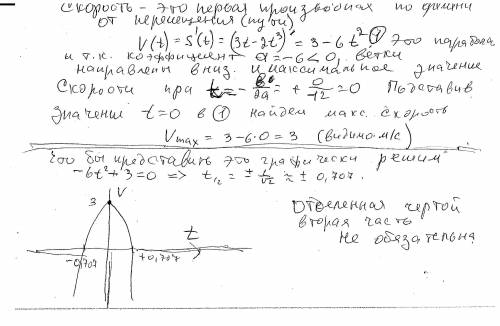 Скорость - это первая производная по времени
от перемещения (пути)
V(t) = S'(t) = (3t-2t³)' = 3-6t² ① Это парабола
и т.к. коэффициент a=-6<0, ветки
направлены вниз. и максимальное значение
Скорости при t = -b/2a = + 0/-12 = 0 Подставив
значение t=0 в ① найдем макс. скорость
Vmax = 3-6·0 = 3 (видимо м/с)
Что бы представить это графически решим
-6t²+3=0 => t₁,₂ = ± 1/√2 ≈ ± 0,707.
V
3
t
-0,707
+0,707
Отделенная чертой
вторая часть
не обязательна